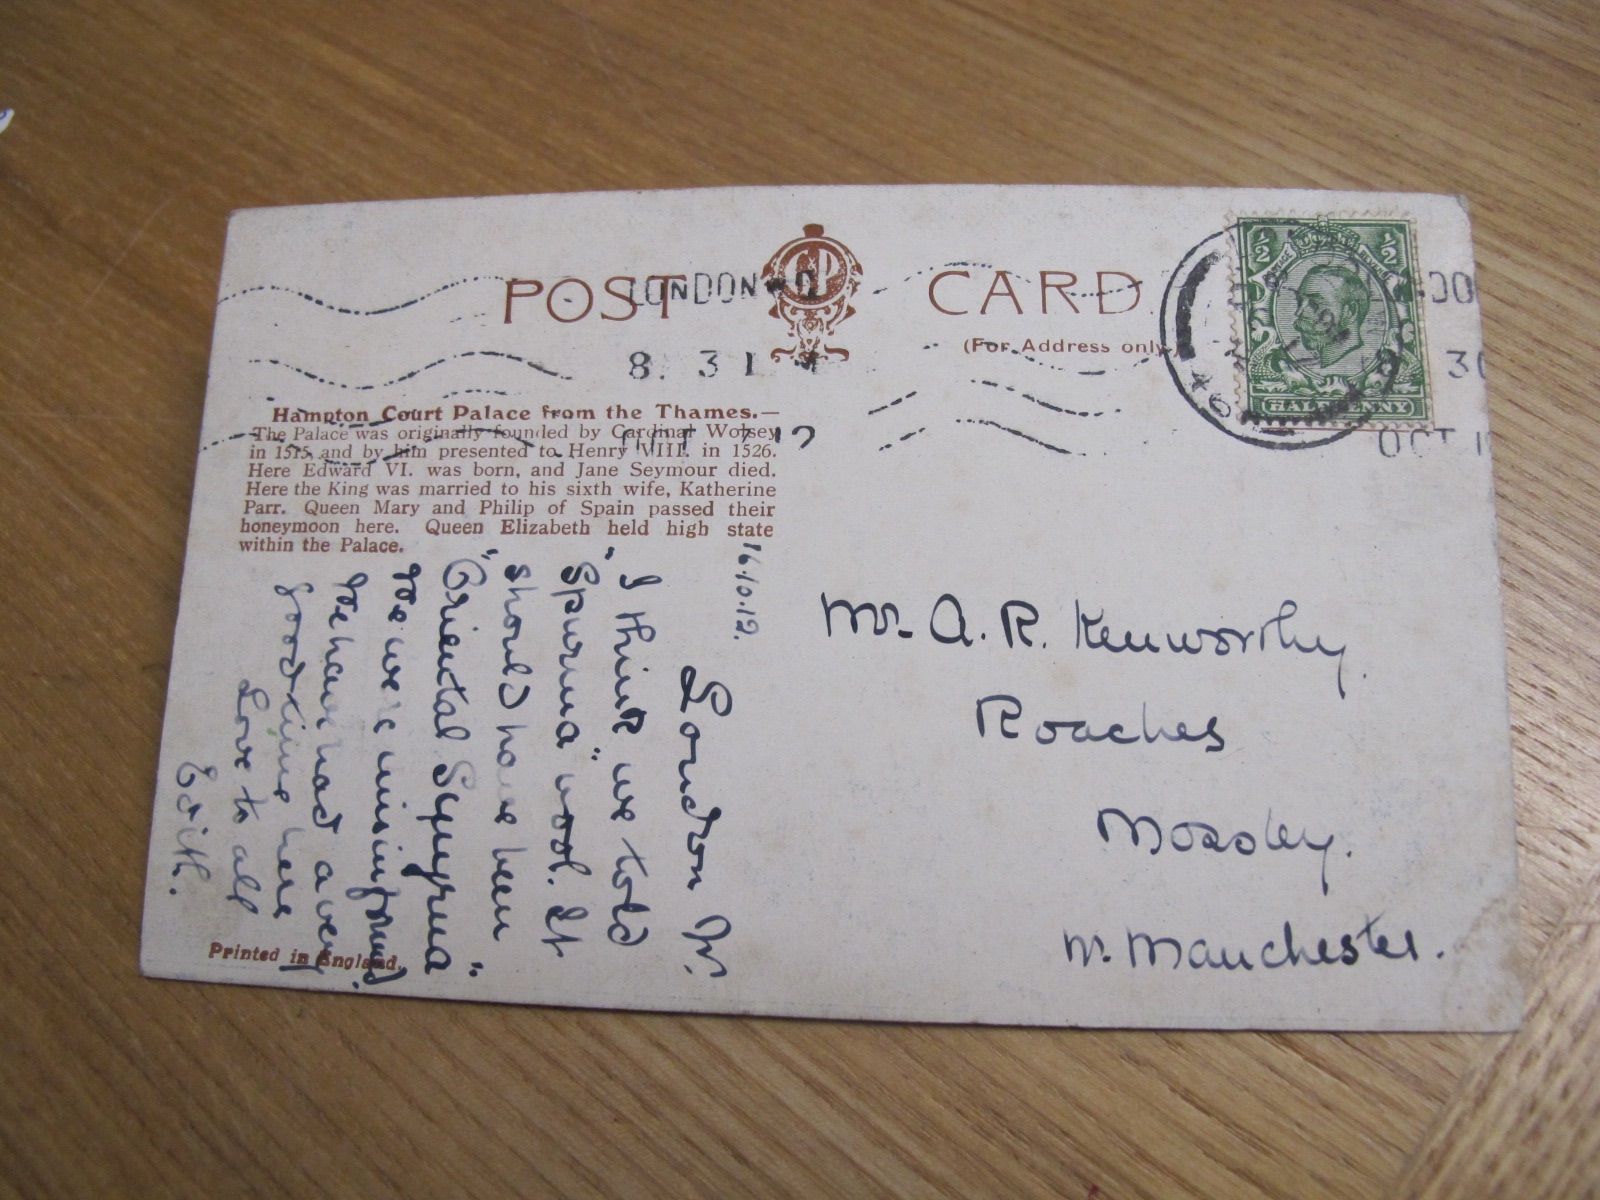 POST CARD
(For Address only.)
LONDON W
8. 31
OCT 17 12
½ ½
HALFPENNY
Hampton Court Palace from the Thames.—
The Palace was originally founded by Cardinal Wolsey
in 1515, and by him presented to Henry VIII. in 1526.
Here Edward VI. was born, and Jane Seymour died.
Here the King was married to his sixth wife, Katherine
Parr. Queen Mary and Philip of Spain passed their
honeymoon here. Queen Elizabeth held high state
within the Palace.
16.10.12.
London W.
I think we told
"Spurna" wool. It
should have been
"Oriental Smyrna"
We were misinformed.
We have had a very
good time here
Love to all
Edith.
Mr. A. R. Kenworthy.
Roaches
Mossley.
Nr. Manchester.
Printed in England.